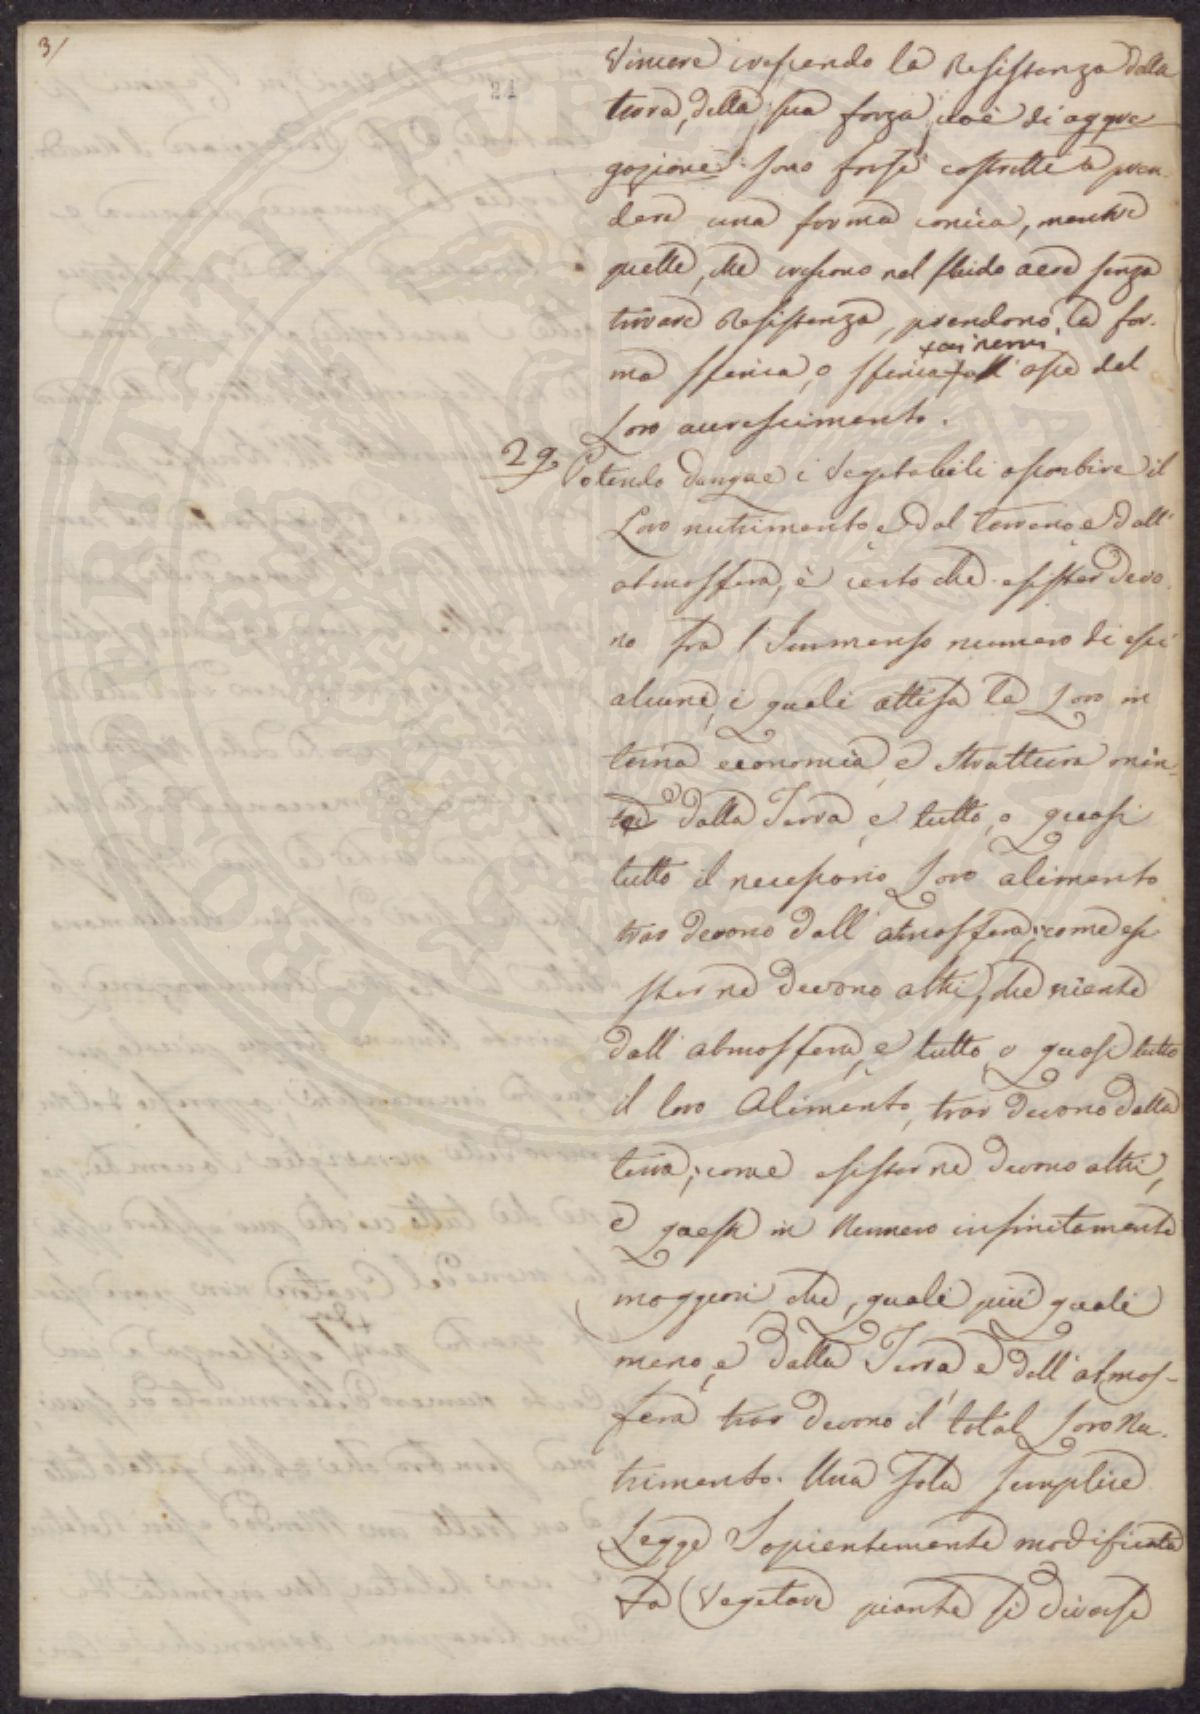 3/
24
Vincere crescendo la Resistenza della
terra, della sua forza cioè di aggre
gazione: sono forse costrette a pren-
dere una forma conica, mentre
quelle, che crescono nel fluido aere senza
trovare Resistenza, prendono la for-
ma sferica, o sferica all' asse del
Loro accrescimento.
29. Potendo dunque i Vegetabili assorbire il
Loro nutrimento e dal terreno e dall'
atmosfera, è certo che esister devo
no fra l'Immenso numero di essi
alcuni, i quali attesa la Loro in
terna economia e struttura nien-
te dalla Terra e tutto, o quasi
tutto il necessario Loro alimento
trar devono dall' atmosfera; come esi
ster ne devono altri, che niente
dall' atmosfera, e tutto o quasi tutto
il loro Alimento, trar devono dalla
terra; come esister ne devono altri,
e questi in Numero infinitamente
maggiori che, quali più quali
meno, e dalla Terra e dall' atmos-
fera trar devono il total Loro Nu-
trimento. Una sola semplice
Legge Sapientemente modificata
fa Vegetare piante sì diverse